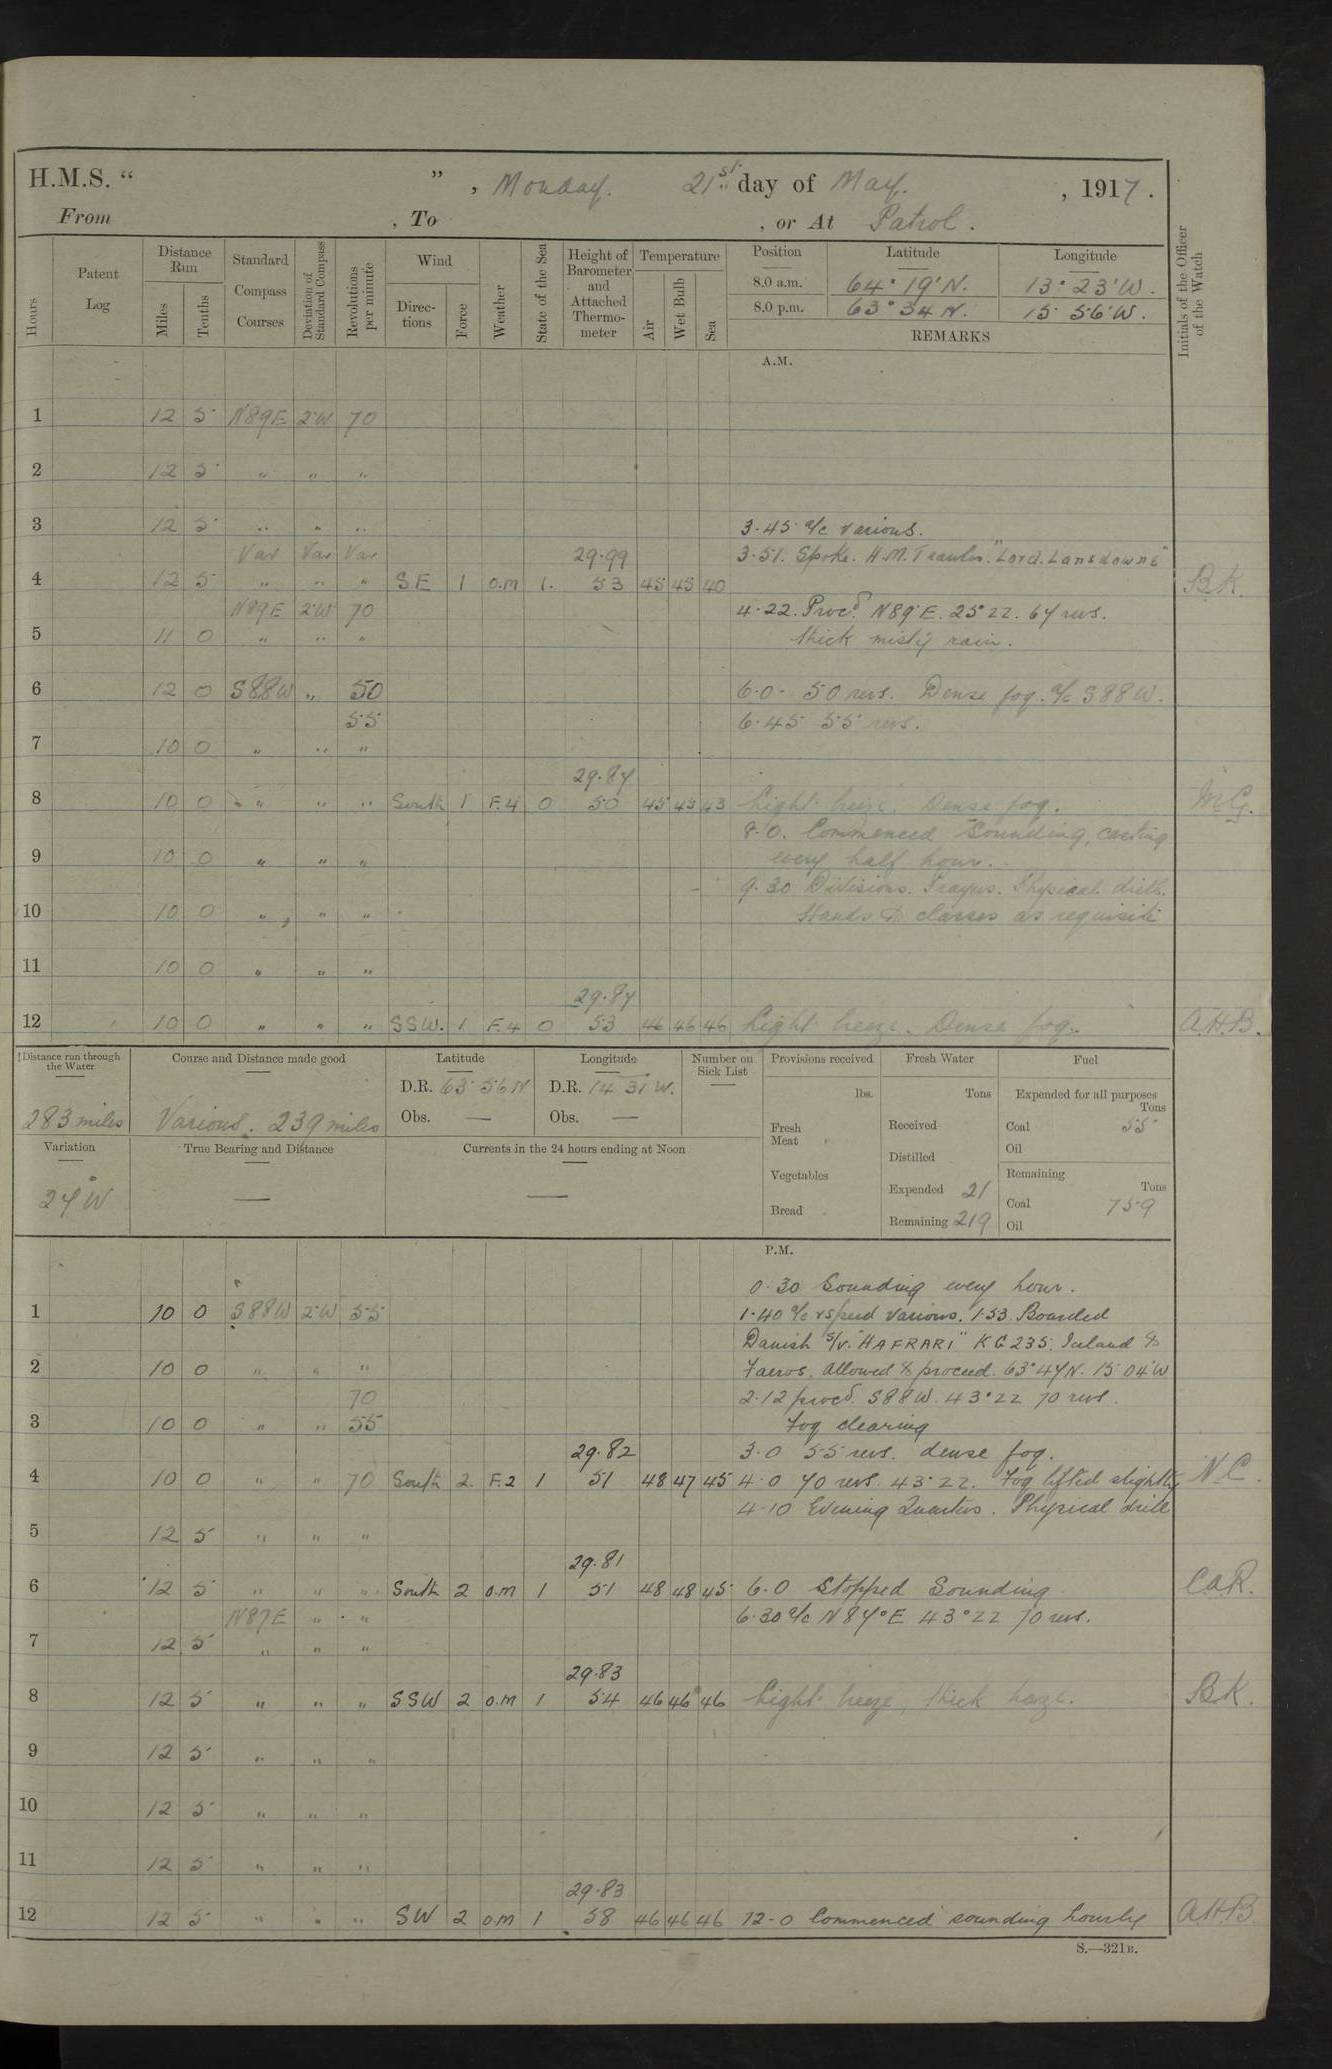 H.M.S. “ ” , Monday. 21st day of May. , 1917.
From , To , or At Patrol.
Hours
Patent Log
Distance Run
Miles
Tenths
Standard Compass Courses
Deviation of Standard Compass
Revolutions per minute
Wind
Directions
Force
Weather
State of the Sea
Height of Barometer and Attached Thermometer
Temperature
Air
Wet Bulb
Sea
Position Latitude Longitude
8.0 a.m. 64° 19' N. 13° 23' W.
8.0 p.m. 63° 34 N. 15 56' W.
REMARKS
Initials of the Officer of the Watch
A.M.
1 12 5 N89E 2·W 70
2 12 5 " " "
3 12 5 " " " 3.45 a/c various.
Var Var Var 29.99 3.51. Spoke. H.M. Trawler. "Lord. Lansdowne"
4 12 5 " " " SE 1 o.m 1. 53 45 45 40 B.K.
N89E 2·W 70 4.22. Procd. N89°E. 25° ZZ. 67 revs.
5 11 0 " " " thick misty rain.
6 12 0 S88W " 50 6.0 - 50 revs. Dense fog. a/c S88W.
55 6.45 55 revs.
7 10 0 " " "
29.87
8 10 0 " " " South 1 F.4 0 50 45 45 43 Light breeze. Dense fog. McG.
8.0. Commenced Sounding, casting
9 10 0 " " " every half hour.
9.30 Divisions. Prayers. Physical drill.
10 10 0 " " " Hands to classes as requisite
11 10 0 " " "
29.87
12 10 0 " " " SSW. 1 F.4 0 53 46 46 46 Light breeze. Dense fog. A.H.B.
Distance run through the Water
283 miles
Course and Distance made good
Various. 239 miles
Latitude
D.R. 63 56 N
Obs. —
Longitude
D.R. 14 31 W.
Obs. —
Number on Sick List
Provisions received
lbs.
Fresh Meat
Vegetables
Bread
Fresh Water
Tons
Received
Distilled
Expended 21
Remaining 219
Fuel
Expended for all purposes
Tons
Coal 55
Oil
Remaining
Tons
Coal 759
Oil
Variation
27°W
True Bearing and Distance
—
Currents in the 24 hours ending at Noon
—
P.M.
0.30 Sounding every hour.
1 10 0 S88W 2·W 55 1.40 a/c & speed various. 1.53. Boarded
Danish S/V. "HAFRARI" KG 235. Iceland to
2 10 0 " " " Faeros. allowed to proceed. 63° 47 N. 15 04'W
70 2.12 procd. S88W. 43° ZZ 70 revs.
3 10 0 " " 55 Fog clearing
29.82 3.0 55 revs. dense fog.
4 10 0 " " 70 South 2. F.2 1 51 48 47 45 4.0 70 revs. 43° ZZ. Fog lifted slightly N.C.
4.10 Evening Quarters. Physical drill
5 12 5 " " "
29.81
6 12 5 " " " South 2 o.m 1 51 48 48 45 6.0 Stopped Sounding C.a.R.
N87E " " 6.30 a/c N87°E 43° ZZ 70 revs.
7 12 5 " " "
29.83
8 12 5 " " " SSW 2 o.m 1 54 46 46 46 Light breeze, thick haze. B.K.
9 12 5 " " "
10 12 5 " " "
11 12 5 " " "
29.83
12 12 5 " " " SW 2 o.m 1 58 46 46 46 12.0 Commenced sounding hourly A.H.B
S.—321B.